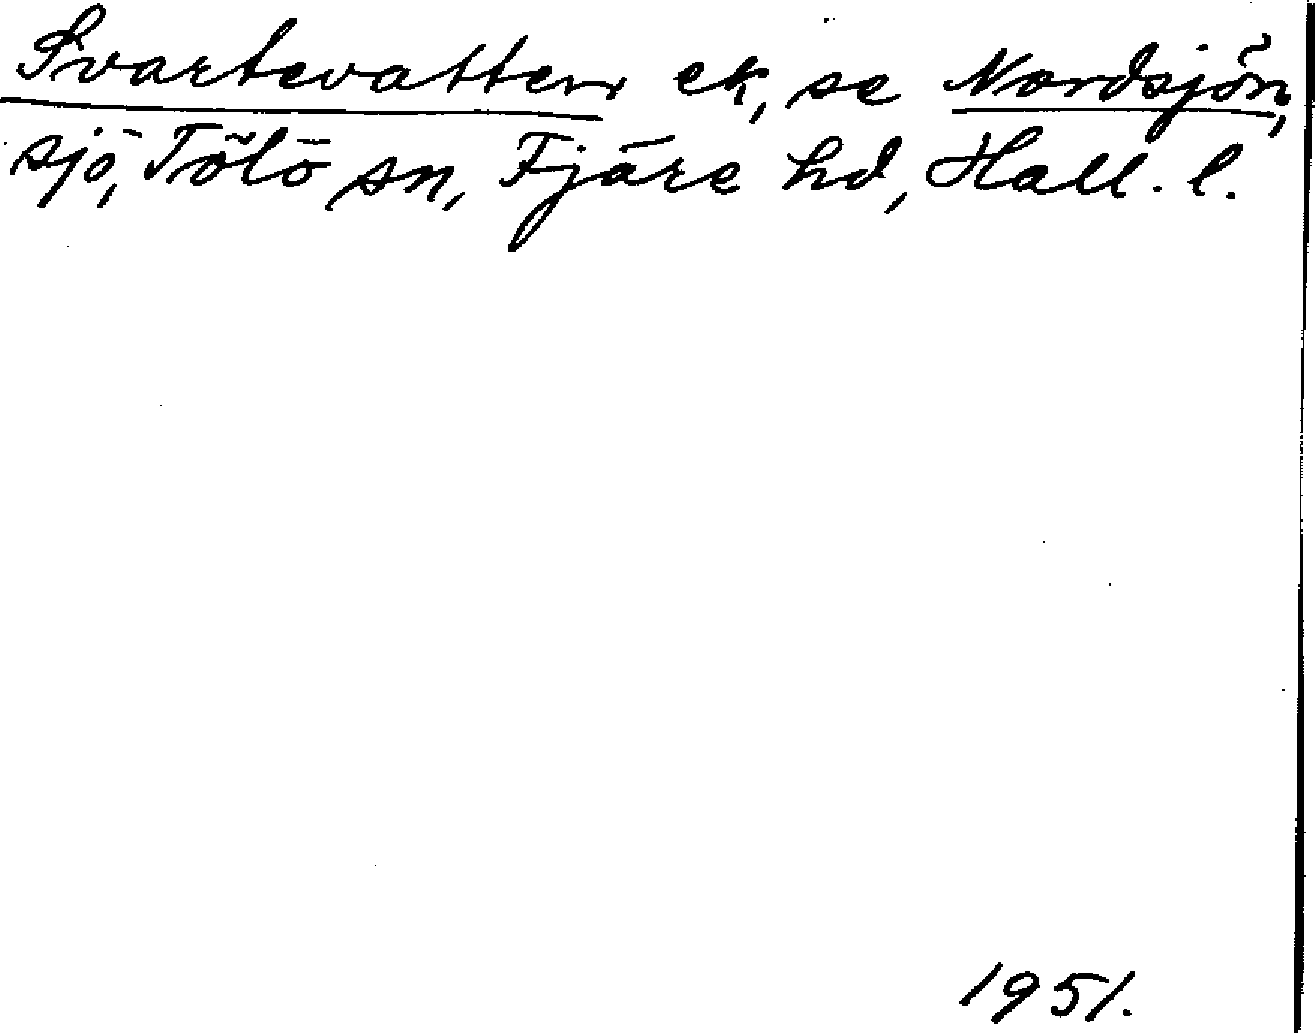 Svartevatten ek, se Nordsjön,
sjö, Tölö sn, Fjäre hd, Hall. l.
1951.